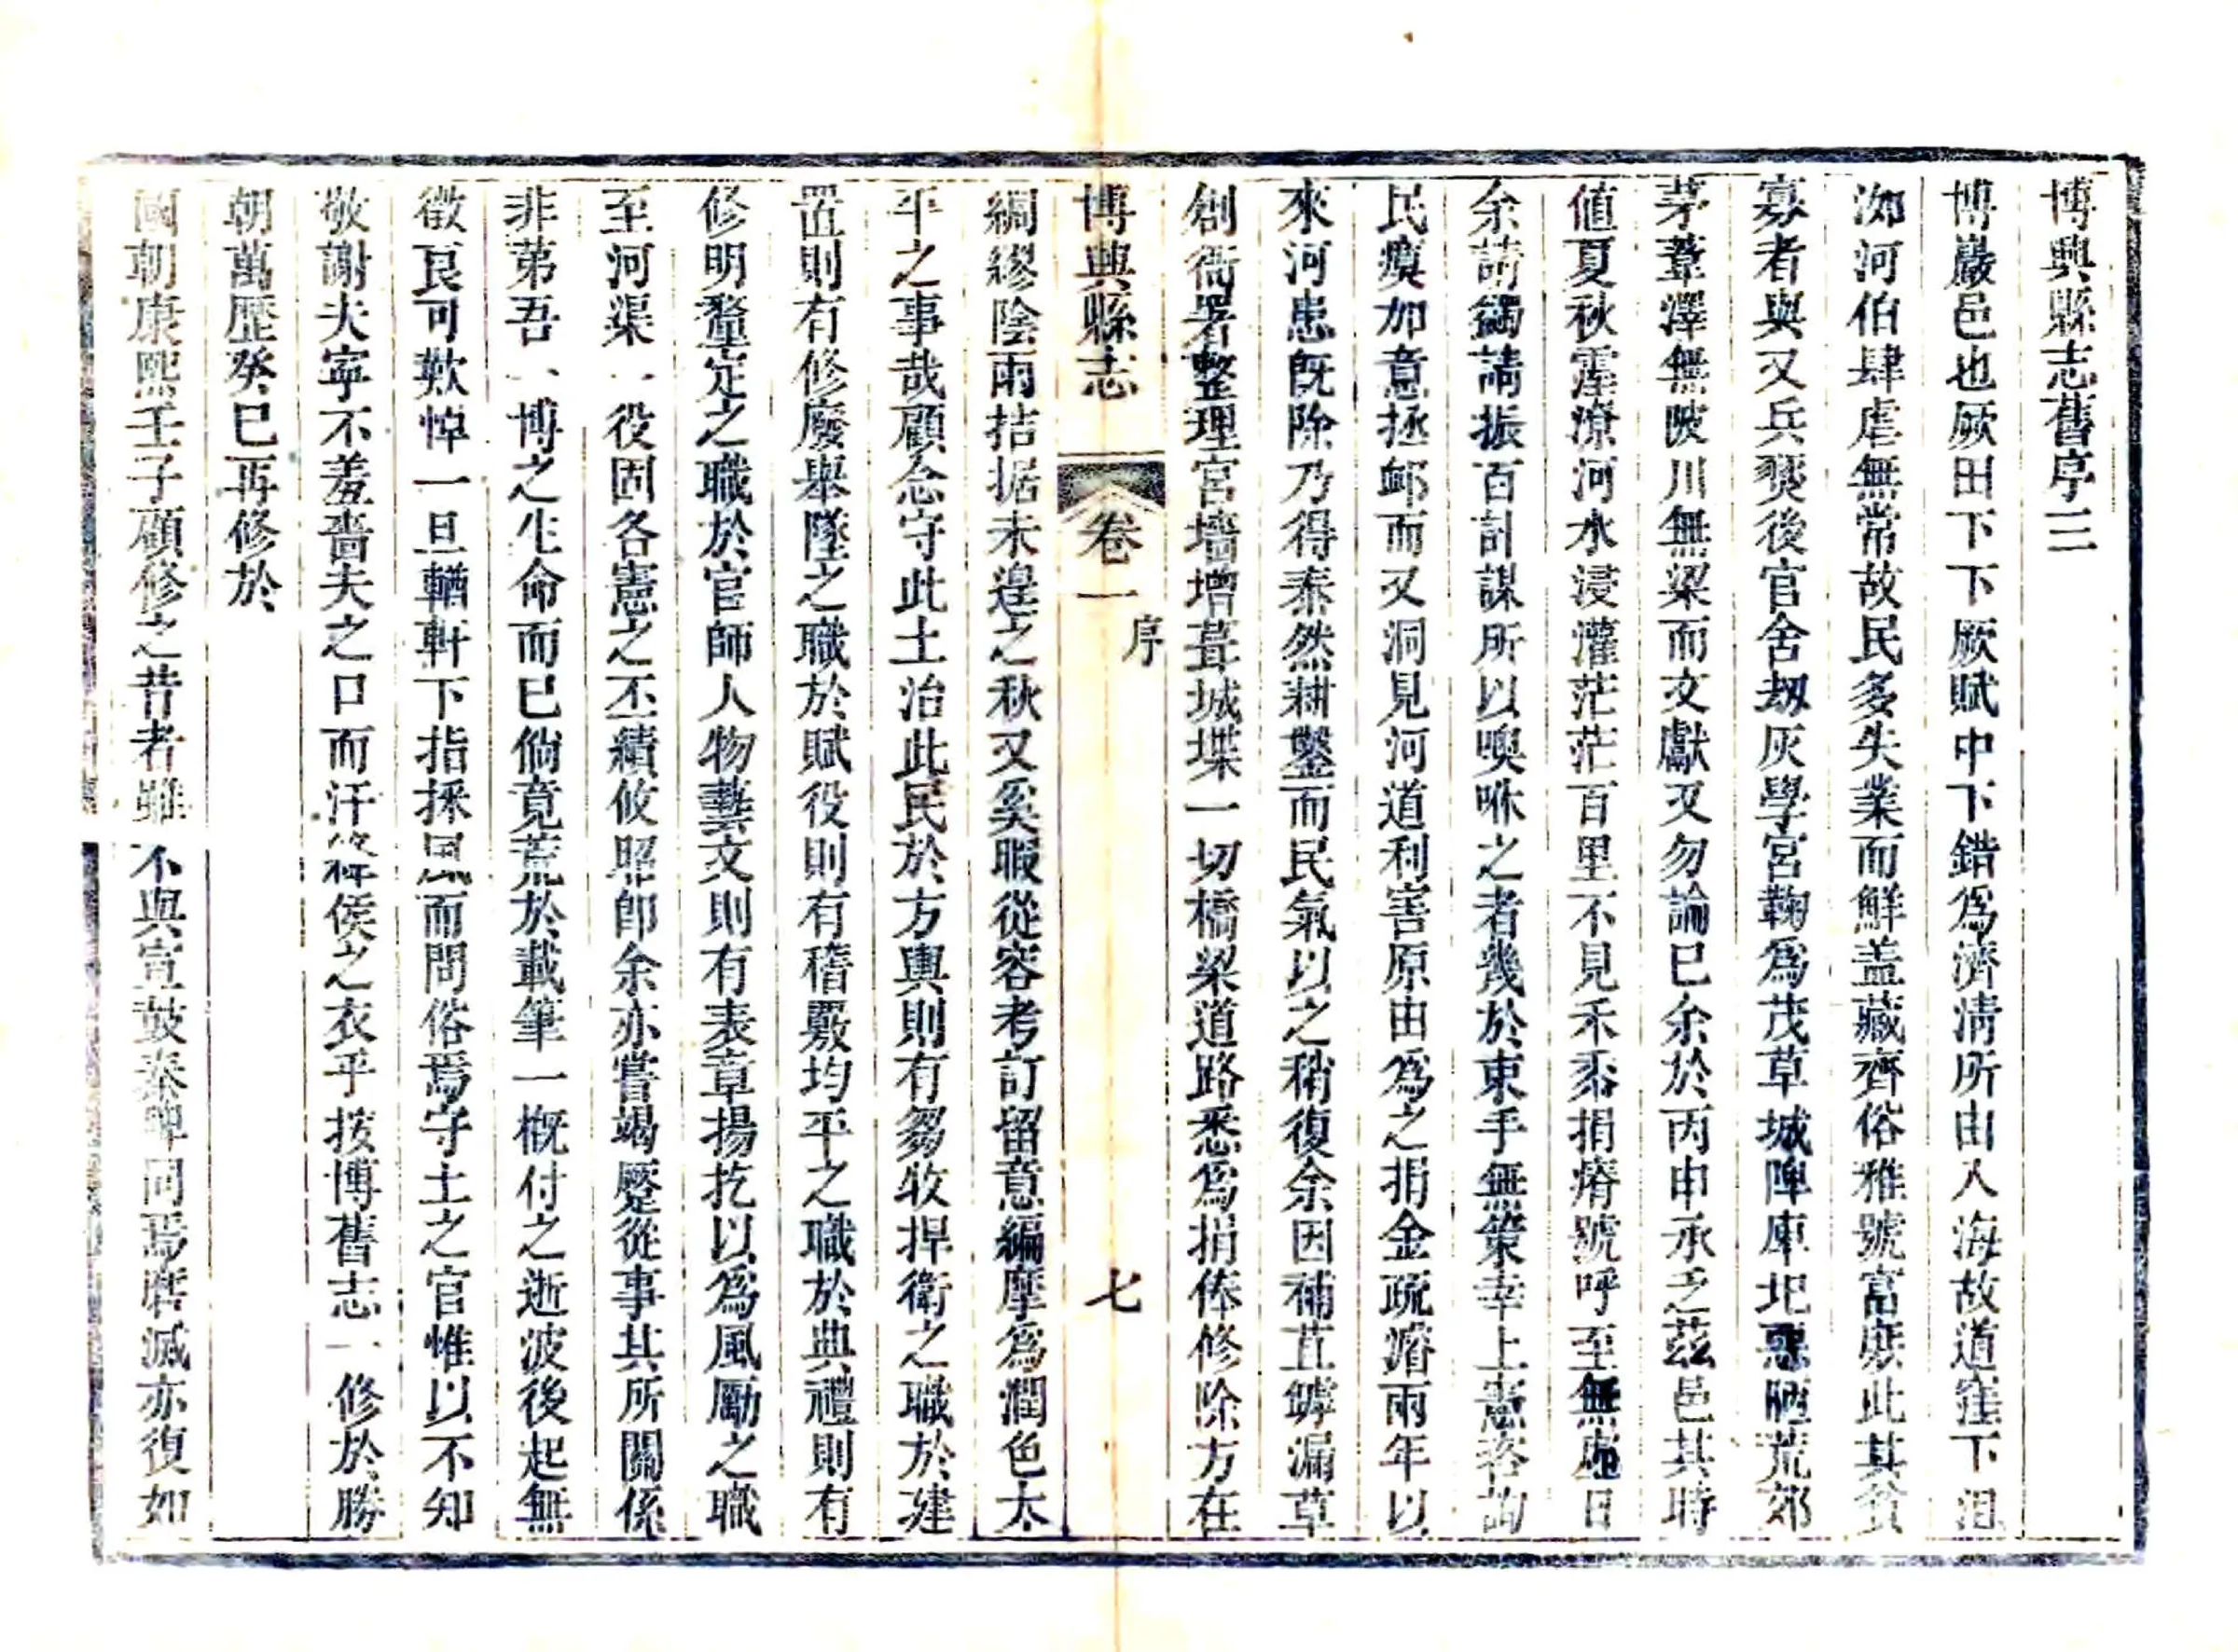 博興縣志舊序三
博巖邑也厥田下下厥賦中下錯爲濟清所由入海故道窪下沮
洳河伯肆虐無常故民多失業而鮮盖藏齊俗雅號富庶此其貧
寡者與又兵燹後官舍刼灰學宮鞠爲茂草城陴庫圯惡陋荒郊
茅葦澤無陂川無梁而文獻又勿論已余於丙申承乏茲邑其時
值夏秋霪潦河水浸灌茫茫百里不見禾黍捐瘠號呼至無虛日
余請蠲請振百計謀所以噢咻之者幾於束手無策幸上憲咨詢
民瘼加意拯卹而又洞見河道利害原由爲之捐金疏濬兩年以
來河患旣除乃得泰然耕鑿而民氣以之稍復余因補苴罅漏草
創衙署整理宮墻增葺城堞一切橋梁道路悉爲捐俸修除方在
博興縣志 卷一 序 七
綢繆陰雨拮据未遑之秋又奚暇從容考訂留意編摩爲潤色太
平之事哉顧念守此土治此民於方輿則有芻牧捍衛之職於建
置則有修廢舉墜之職於賦役則有稽覈均平之職於典禮則有
修明釐定之職於官師人物藝文則有表章揚扢以爲風勵之職
至河渠一役固各憲之丕績攸昭卽余亦嘗竭蹷從事其所關係
非第吾一博之生命而已倘竟荒於載筆一概付之逝波後起無
徵良可歎悼一旦輶軒下指採風而問俗焉守土之官惟以不知
敬謝夫寧不羞嗇夫之口而汗絳侯之衣乎按博舊志一修於勝
朝萬歷癸巳再修於
國朝康熙壬子顧修之昔者雖不與宣鼓秦碑同焉磨滅亦復如